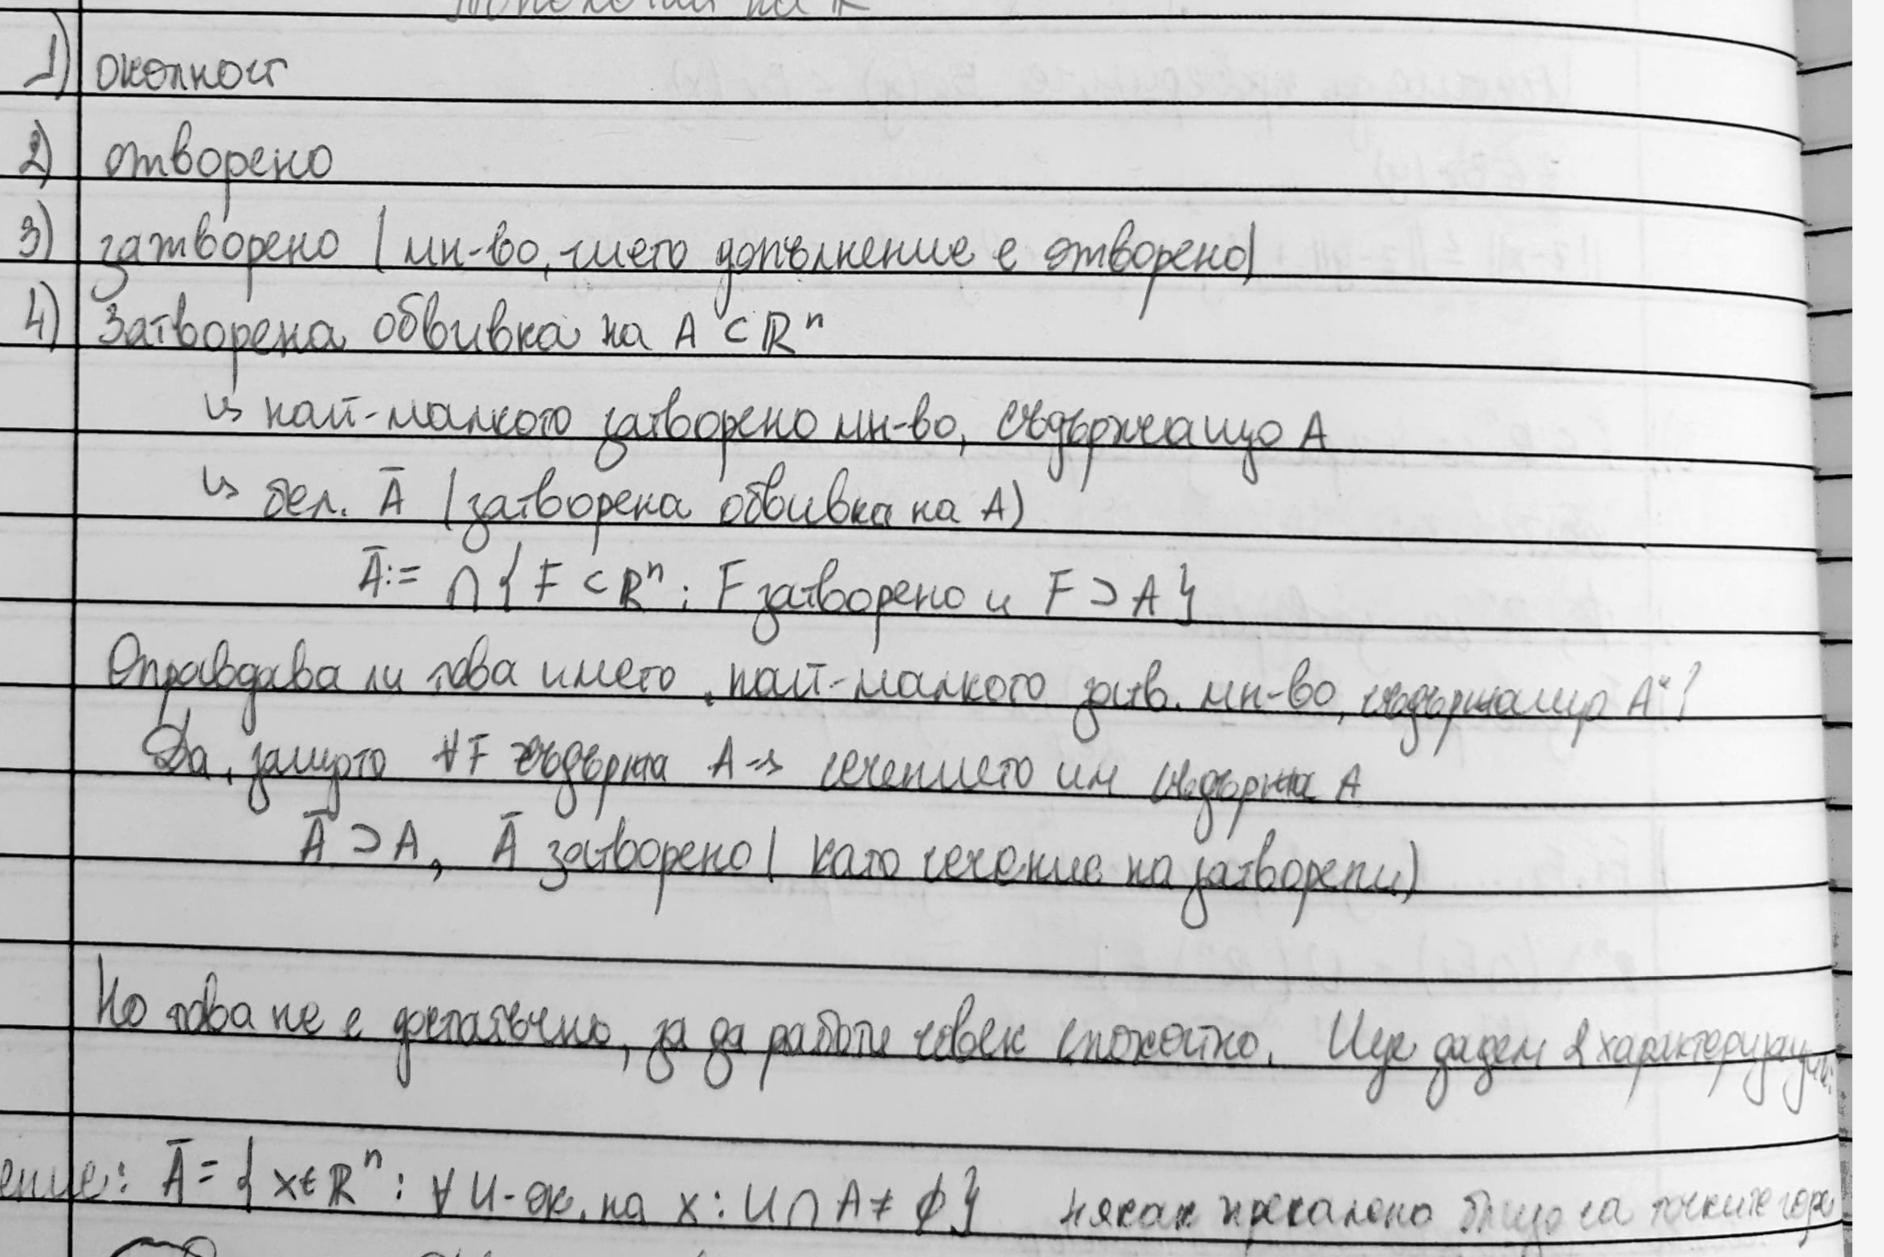 1) околност
2) отворено
3) затворено (мн-во, чието допълнение е отворено)
4) Затворена обвивка на A ⊂ ℝⁿ
↳ най-малкото затворено мн-во, съдържащо A
↳ бел. Ā (затворена обвивка на A)
Ā := ∩ { F ⊂ ℝⁿ : F затворено и F ⊃ A }
Оправдава ли това името „най-малкото затв. мн-во, съдържащо A“?
Да, защото ∀F съдържа A → сечението им съдържа A
Ā ⊃ A, Ā затворено (като сечение на затворени)
Но това не е достатъчно, за да работи човек спокойно. Ще дадем 2 характеризации:
ение: Ā = { x ∈ ℝⁿ : ∀ U - ок. на x : U ∩ A ≠ ∅ } някак прекалено близо са точките